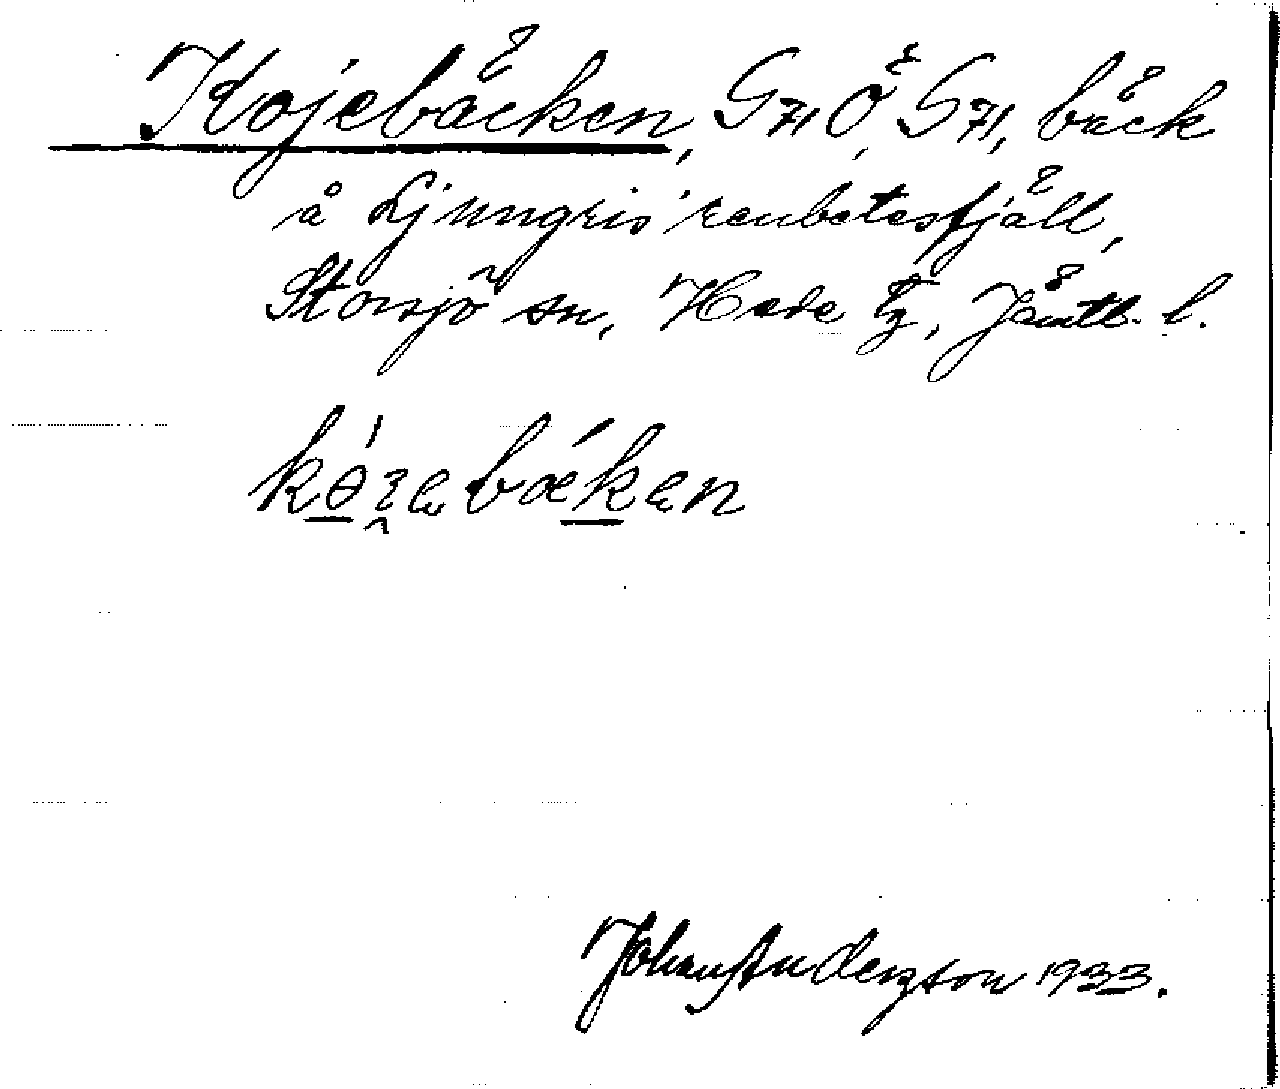 Kojebäcken, G71, Ö, G71, bäck
å Ljungris renbetesfjäll,
Storsjö sn, Hede tg, Jämtl. l.
bæken
Johan Anderzson 1933.